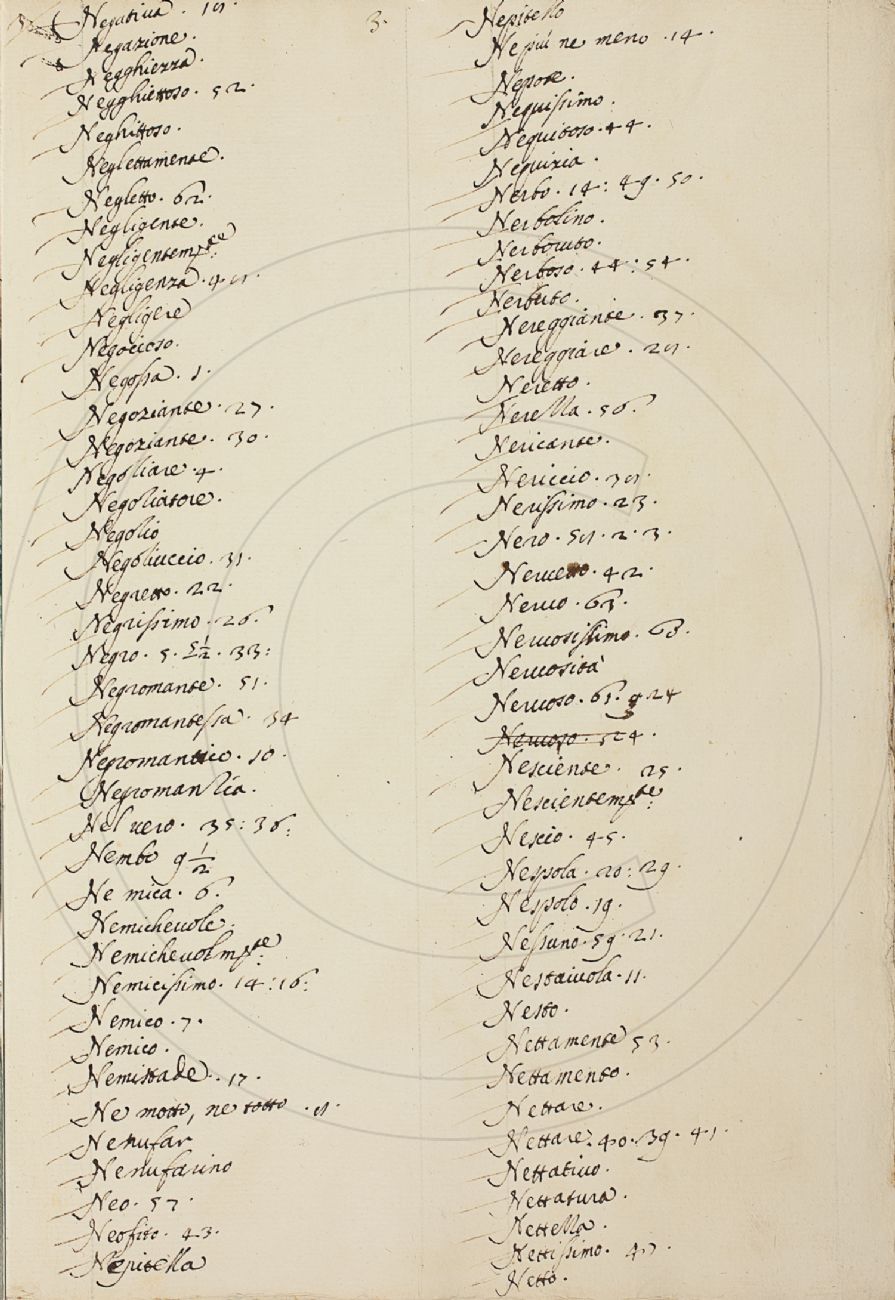 3.
Negativa.
Negazione.
Negghienza.
Negghiettoso. 52.
Neghittoso.
Neglettamente.
Negletto. 62.
Negligente.
Negligentemte:
Negligenza.
Negligere
Negocioso.
Negossa. 1.
Negoziante. 27.
Negoziante. 30.
Negoziare. 4.
Negoziatore.
Negozio
Negoziuccio. 31.
Negretto. 22.
Negrissimo. 26.
Negro. 5. 5½. 33:
Negromante. 51.
Negromantessa. 34
Negromantico. 10.
Negromanzia.
Nel vero. 35: 36:
Nembo 9½
Ne mica. 6.
Nemichevole.
Nemichevolmte:
Nemicissimo. 14: 16:
Nemico. 7.
Nemico.
Nemistade. 17.
Ne motto, ne totto
Nenufar
Nenufarino
Neo. 57.
Neofito. 43.
Nepitella
Nepitello
Ne più ne meno. 14.
Nepote.
Nequissimo.
Nequitoso. 44.
Nequizia.
Nerbo. 14: 49. 50.
Nerbolino.
Nerboruto.
Nerboso. 44: 54.
Nerbuto.
Nereggiante. 37.
Nereggiare.
Neretto.
Nerella. 56.
Nericante.
Nericcio.
Nerissimo. 23.
Nero. 2. 3.
Nervetto. 42.
Nervo. 63.
Nervosissimo.
Nervosità
Nervoso. 61. 24
Nervoso. 524.
Nesciente. 25.
Nescientemte:
Nescio. 45.
Nespola. 20: 29.
Nespolo. 19.
Nessuno. 59. 21.
Nestaiuola. 11.
Nesto.
Nettamente 53.
Nettamento.
Nettare.
Nettare. 40. 39. 41.
Nettativo.
Nettatura.
Nettella.
Nettissimo. 47.
Netto.